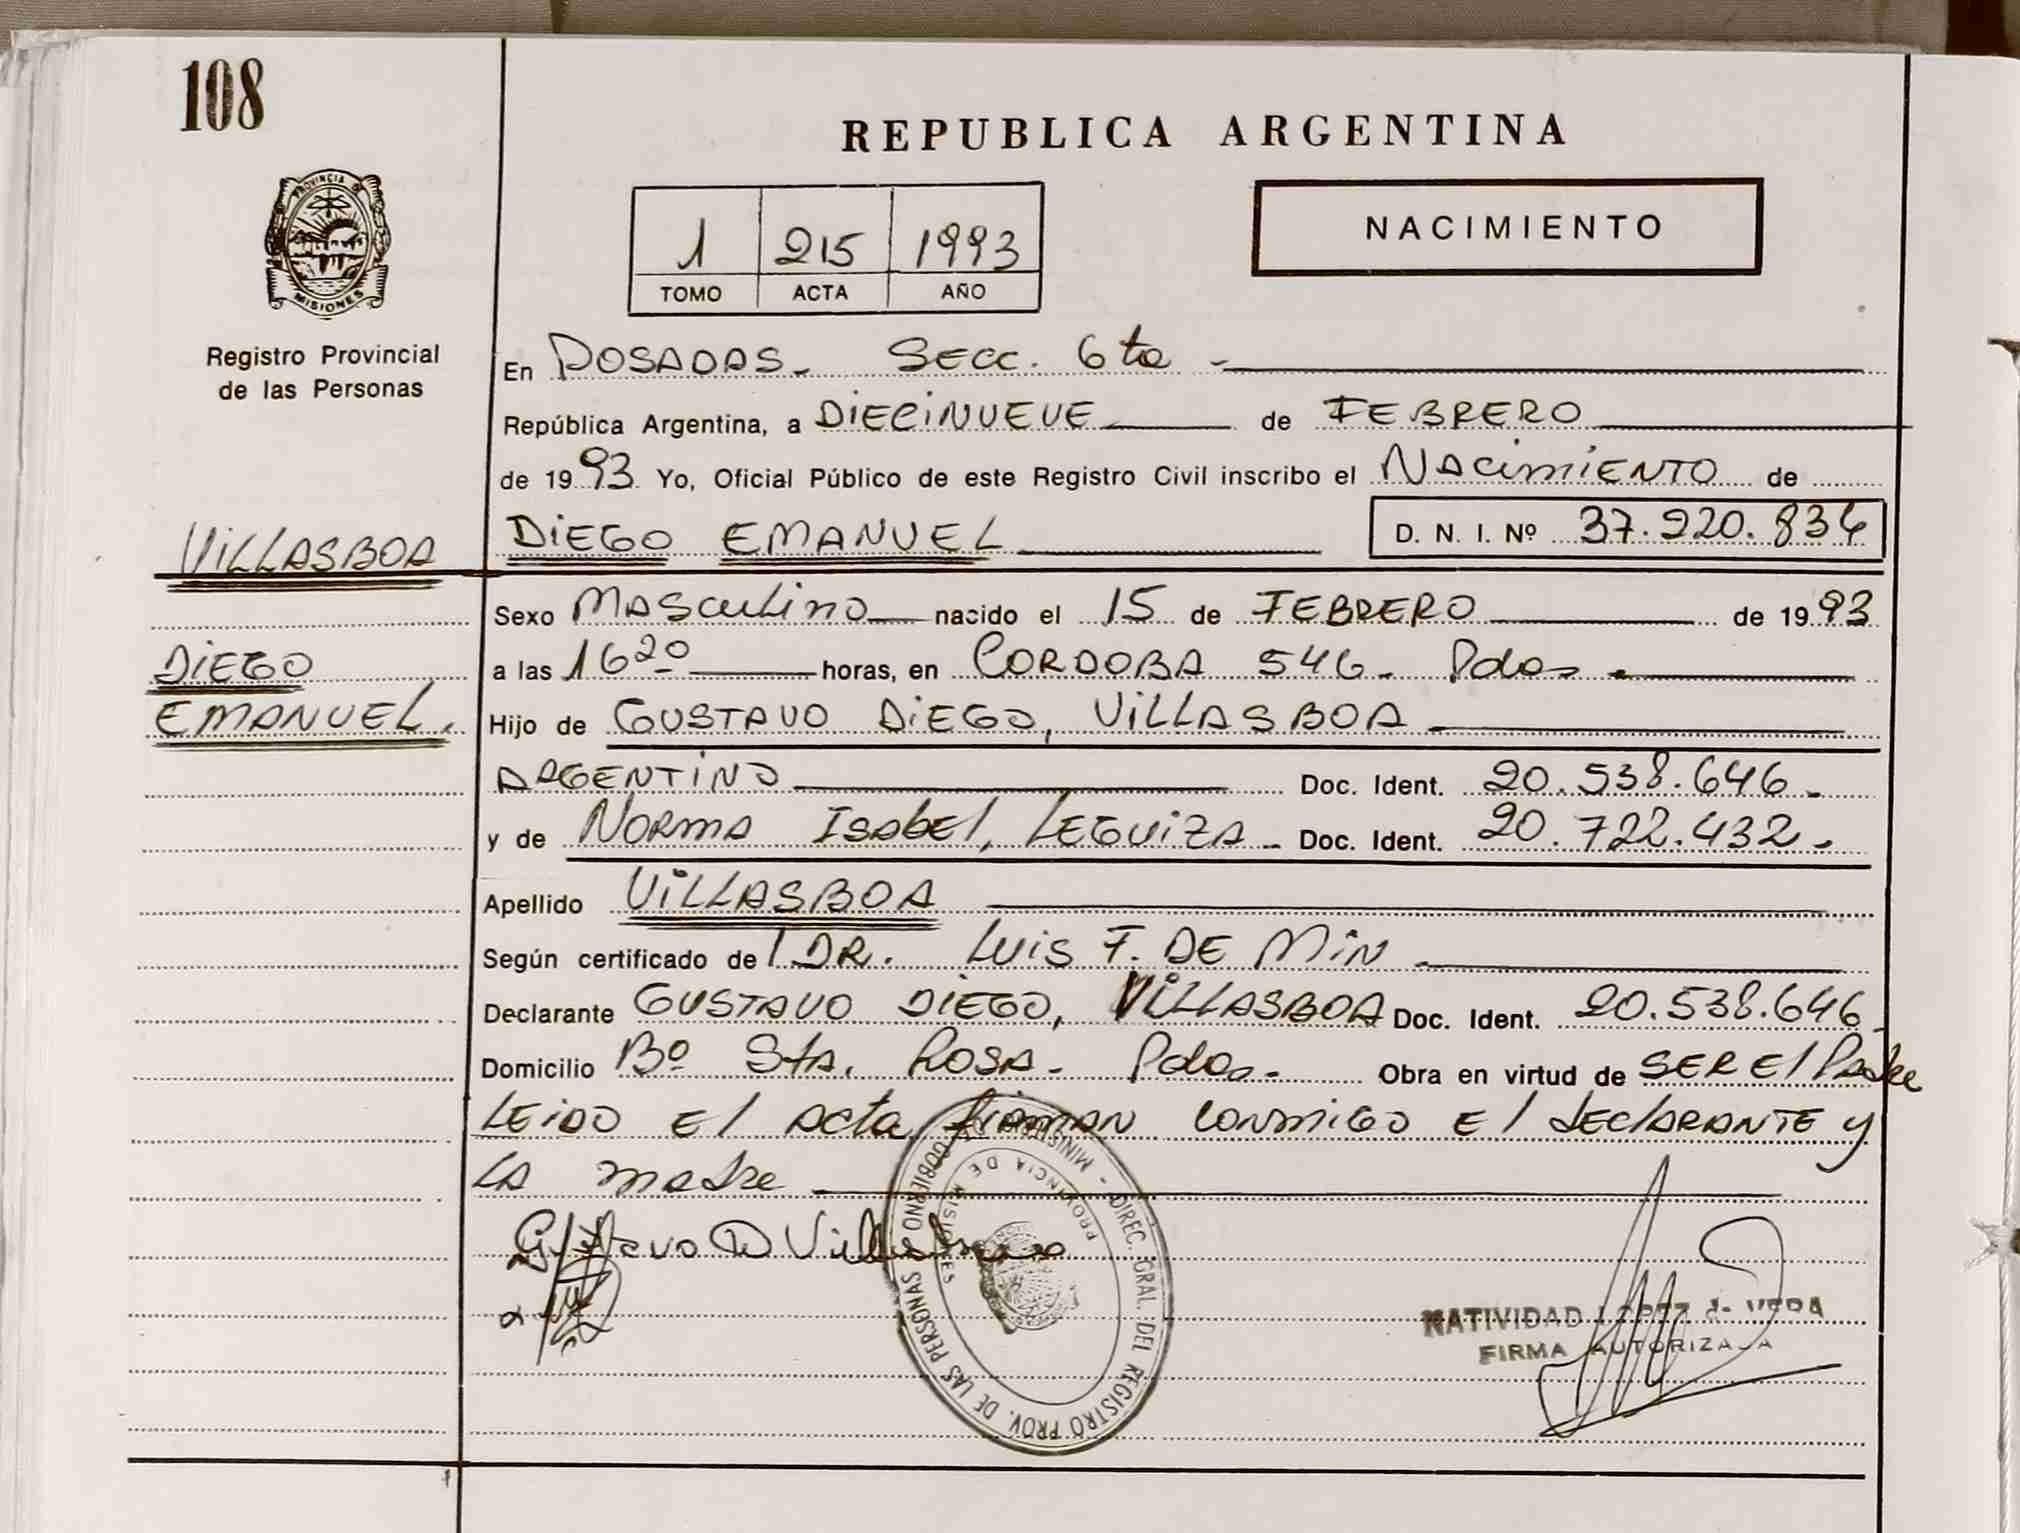 108
REPUBLICA ARGENTINA
PROVINCIA DE
MISIONES
1 215 1993
TOMO ACTA AÑO
NACIMIENTO
Registro Provincial
de las Personas
En POSADAS. SECC. 6ta
República Argentina, a DIECINUEVE de FEBRERO
de 1993 Yo, Oficial Público de este Registro Civil inscribo el NACIMIENTO de
VILLASBOA
DIEGO EMANUEL D. N. I. Nº 37.920.834
Sexo MASCULINO nacido el 15 de FEBRERO de 1993
DIEGO
a las 16 20 horas, en CORDOBA 546. Pdas.
EMANUEL.
Hijo de GUSTAVO DIEGO, VILLASBOA
ARGENTINO Doc. Ident. 20.538.646.
y de NORMA ISABEL, LEGUIZA Doc. Ident. 20.722.432.
Apellido VILLASBOA
Según certificado del DR. LUIS F. DE MIN
Declarante GUSTAVO DIEGO, VILLASBOA Doc. Ident. 20.538.646
Domicilio Bº Sta. ROSA. Pdas. Obra en virtud de SER El Padre
LEIDO El acta firman conmigo El declarante y
LA madre
Gustavo D Villasboa
MINIST. GOBIERNO - DIREC. GRAL. DEL REGISTRO PROV. DE LAS PERSONAS
PROVINCIA DE MISIONES
NATIVIDAD LOPEZ d- VERA
FIRMA AUTORIZADA